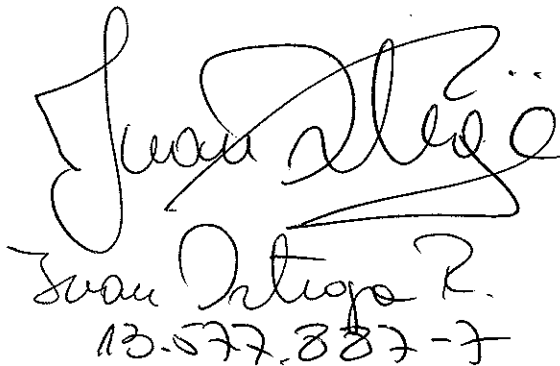 Juan Ortega
Juan Ortega R.
13.577.887-7